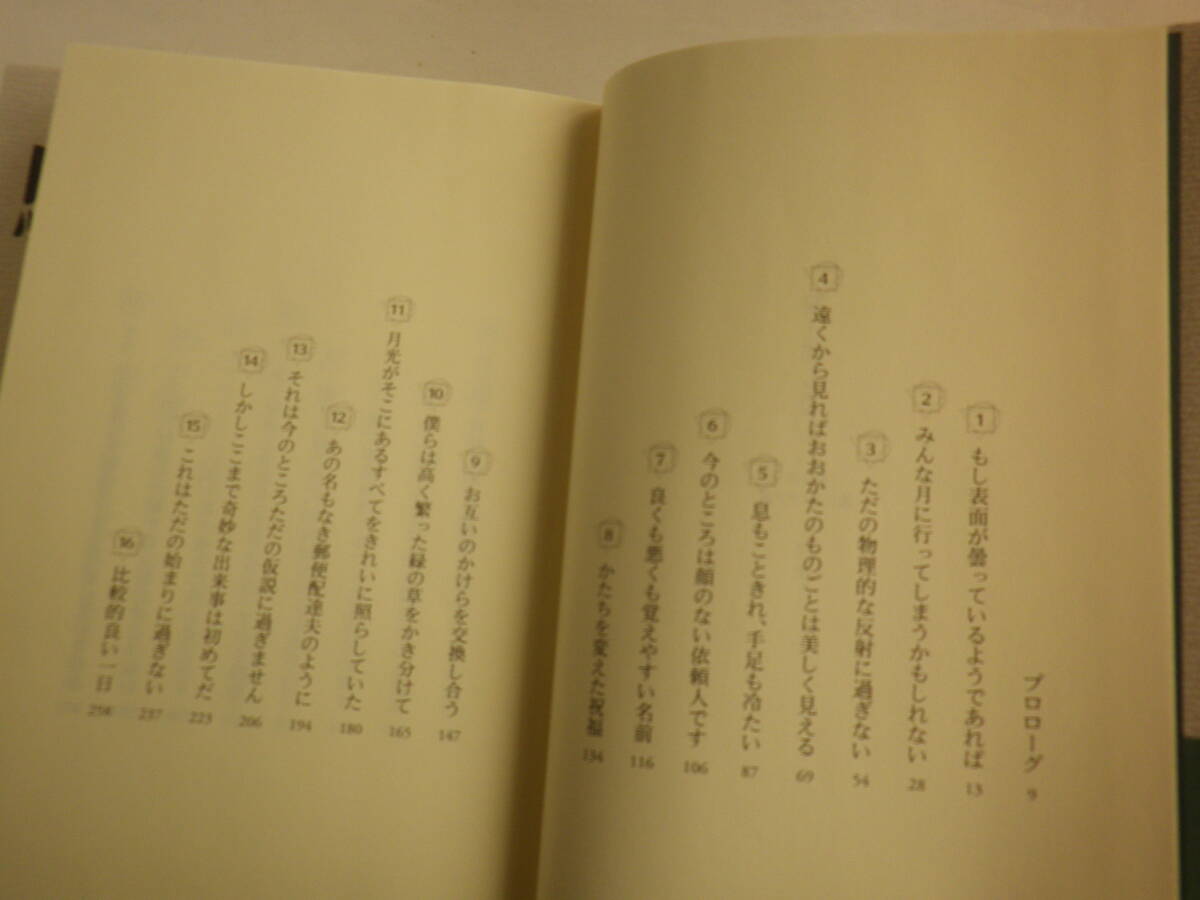 プロローグ 9
1 もし表面が曇っているようであれば 13
2 みんな月に行ってしまうかもしれない 28
3 ただの物理的な反射に過ぎない 54
4 遠くから見ればおおかたのものごとは美しく見える 69
5 息もこときれ、手足も冷たい 87
6 今のところは顔のない依頼人です 106
7 良くも悪くも覚えやすい名前 116
8 かたちを変えた祝福 134
9 お互いのかけらを交換し合う 147
10 僕らは高く繁った緑の草をかき分けて 165
11 月光がそこにあるすべてをきれいに照らしていた 180
12 あの名もなき郵便配達夫のように 194
13 それは今のところただの仮説に過ぎません 206
14 しかしここまで奇妙な出来事は初めてだ 223
15 これはただの始まりに過ぎない 237
16 比較的良い一日 258